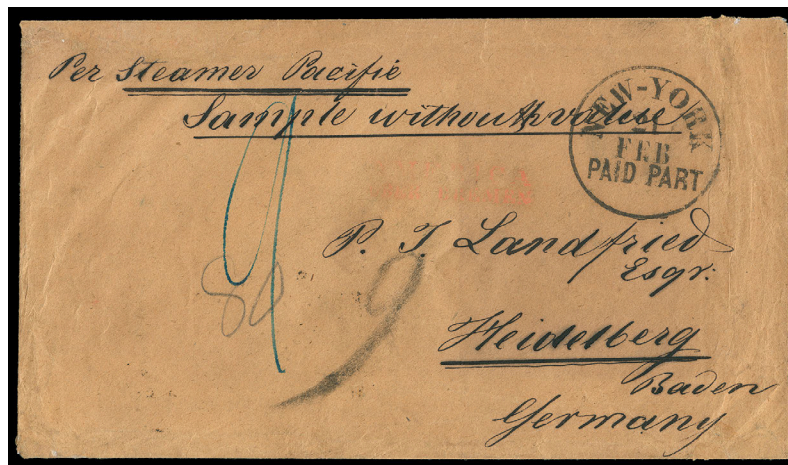 Per Steamer Pacific
Sample without value
NEW-YORK
21
FEB
PAID PART
P. J. Landfried
Esqr.
80
9
9
Heidelberg
Baden
Germany